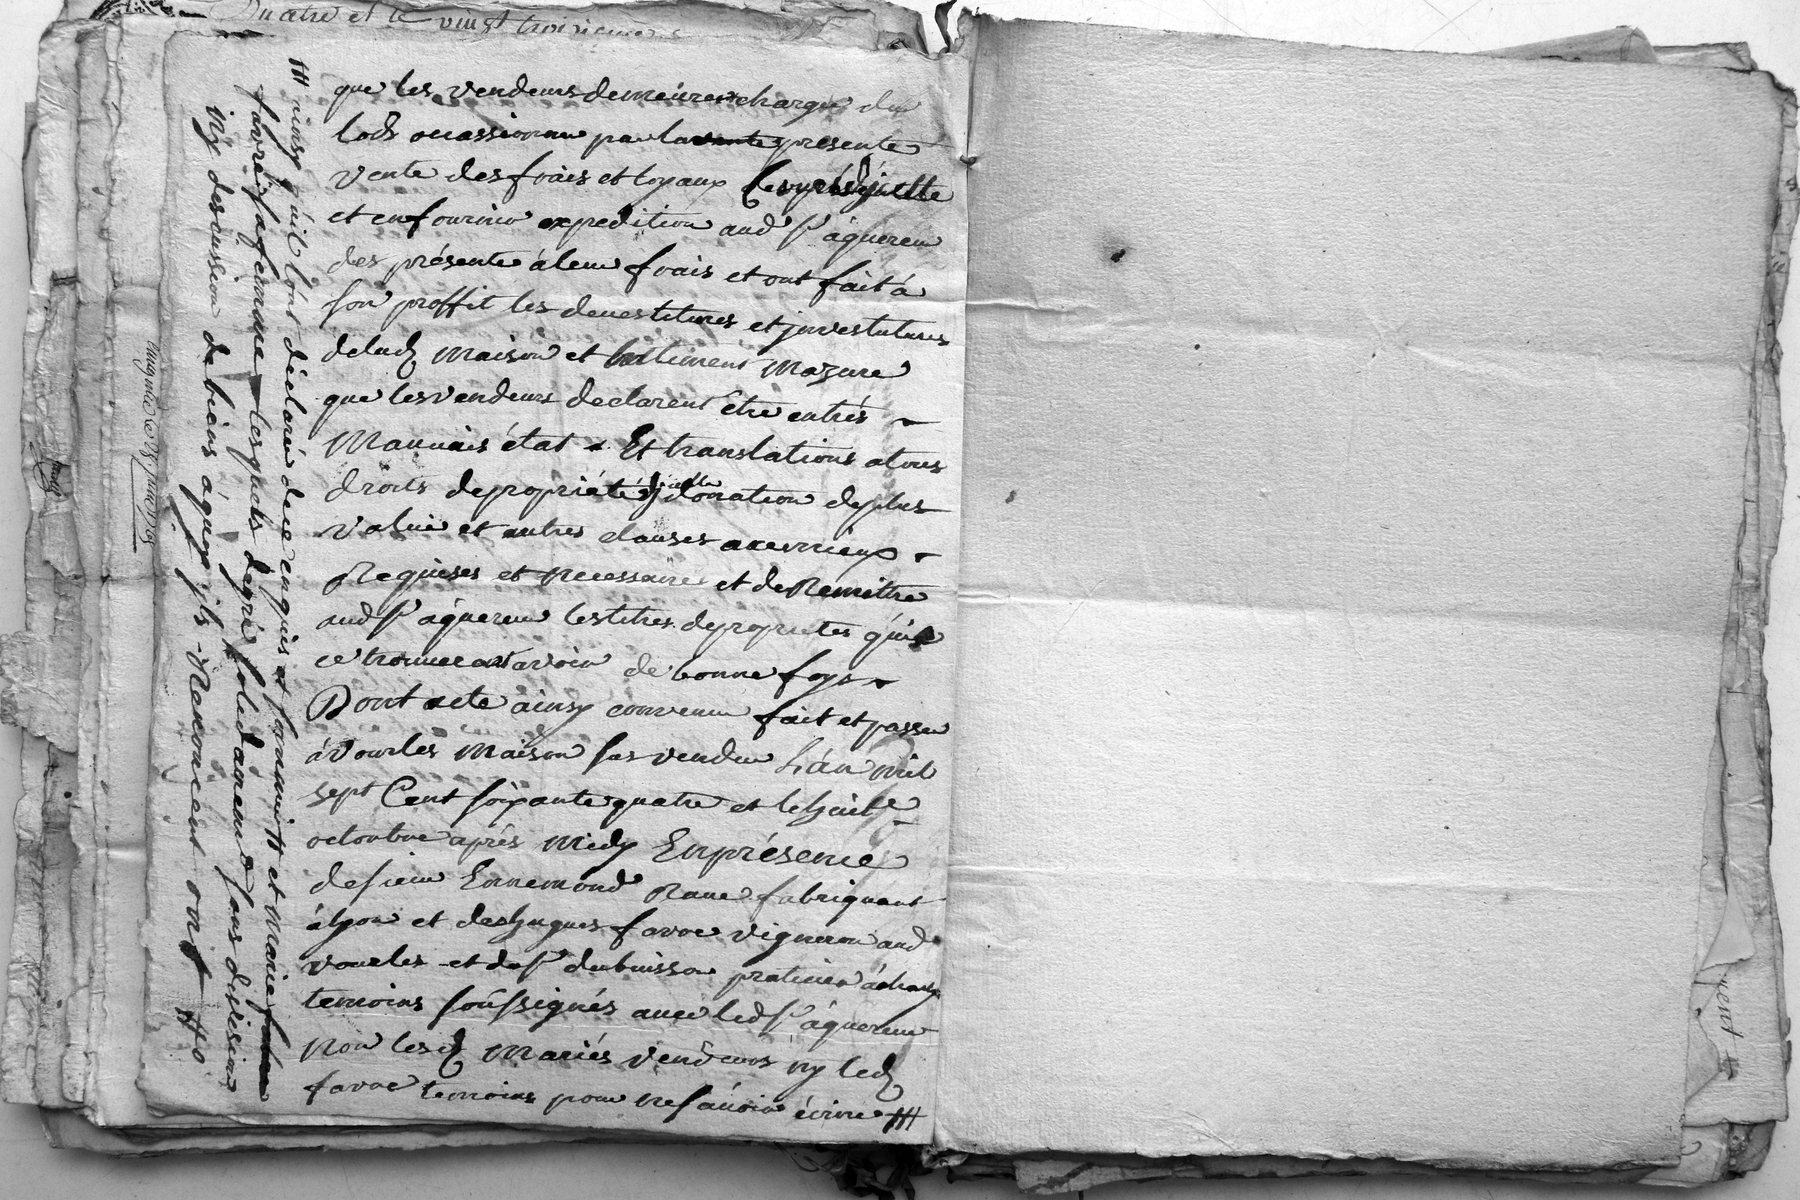 quatre et le vingt troisieme
que les vendeurs demeurent chargé du
lods occassionnéé par la vente présente
vente des frais et loyaux
et en fournir expedition aud Sr áquereur
des présente á leur frais et ont fait á
son proffit les devestitures et jnvestitures
delad maison et batiment mazure
que les vendeurs declarent étre entrés
mauvais état Et translations atous
droits de propriété donation de plus
value et autres clauses
Requises et necessaire et de Remettre
aud Sr áquereur les titres de proprietes qúils
ce trouveront avoir de bonne foys
Dont acte ainsy convenu fait et passé
á Vourles maison des vendeur L'án mil
sept Cent soixante quatre et le huit
octoubre aprés midy En présence
de sieur Ennemond Rave fabriquant
á lyon et de hugues favre vigneron aud
vourles et de Sr dubuisson praticien
temoins soussignés avec led Sr áquereur
non lesd mariés vendeurs ny led
favre temoins pour ne sávoir écrire #
# ainsy qúil l'ont déclaré de ce enquis et sommés # et marie
favre sa femme lesquels de gré solidairement sans division
ny descussion de biens áquoy jls Renoncent ont #